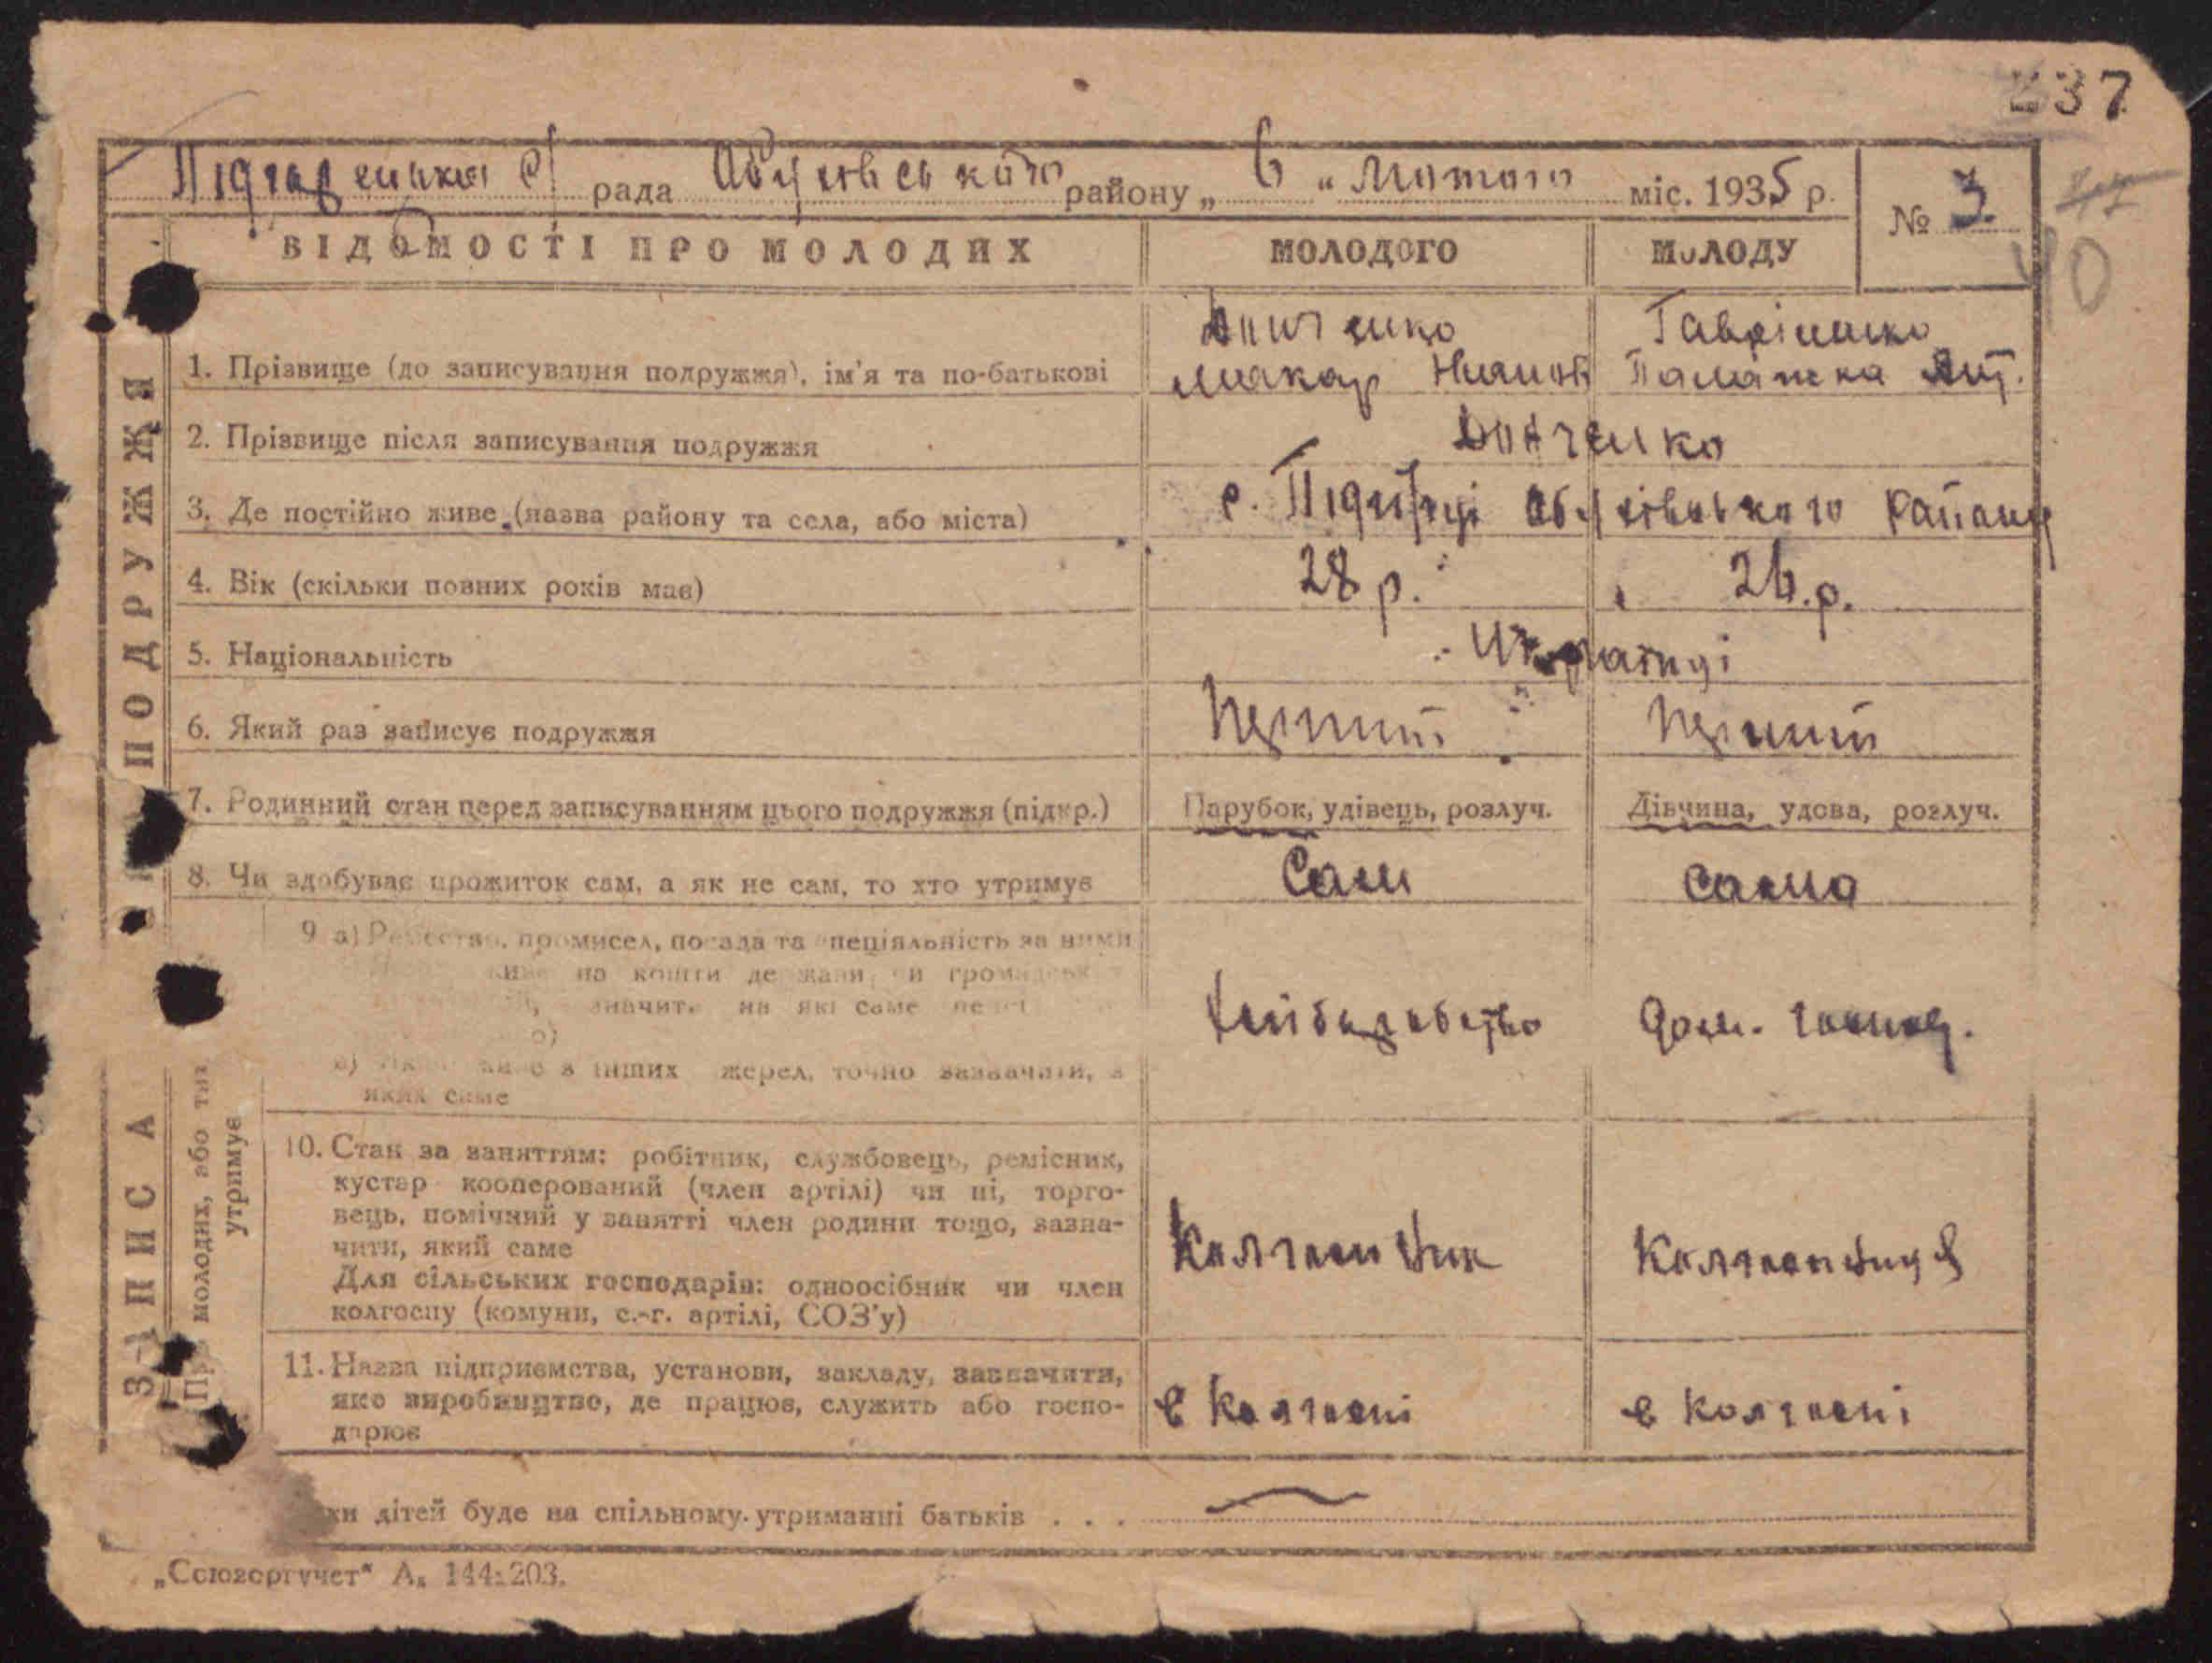 37
рада Обухівського району „ 6 “ Лютого міс. 1935 р.
№ 3.
40
ВІДОМОСТІ ПРО МОЛОДИХ
МОЛОДОГО
МОЛОДУ
1. Прізвище (до записування подружжя), ім'я та по-батькові
Донченко
Макар
Гавріленко
2. Прізвище після записування подружжя
Донченко
3. Де постійно живе (назва району та села, або міста)
с. Підгірці Обухівського Району
4. Вік (скільки повних років має)
28 р.
26.р.
5. Національність
Українці
6. Який раз записує подружжя
Перший
Перший
7. Родинний стан перед записуванням цього подружжя (підкр.)
Парубок, удівець, розлуч.
Дівчина, удова, розлуч.
8. Чи здобуває прожиток сам, а як не сам, то хто утримує
Сам
сама
9 а) промисел, посада та спеціяльність за ними
на кошти держави, чи
на які саме
о)
в) з інших джерел, точно зазначити, з
яких саме
Дом. господ.
10. Стан за заняттям: робітник, службовець, ремісник,
кустар кооперований (член артілі) чи ні, торго-
вець, помічний у занятті член родини тощо, зазна-
чити, який саме
Для сільських господарів: одноосібник чи член
колгоспу (комуни, с.-г. артілі, СОЗ'у)
Колгоспник
Колгоспниця
11. Назва підприємства, установи, закладу, зазначити,
яке виробництво, де працює, служить або госпо-
дарює
в Колгоспі
в колгоспі
дітей буде на спільному утриманні батьків . . .
„Союзоргучет“ А. 144-203.
ЗАПИС ПОДРУЖЖЯ
Про молодих, або тих
утримує